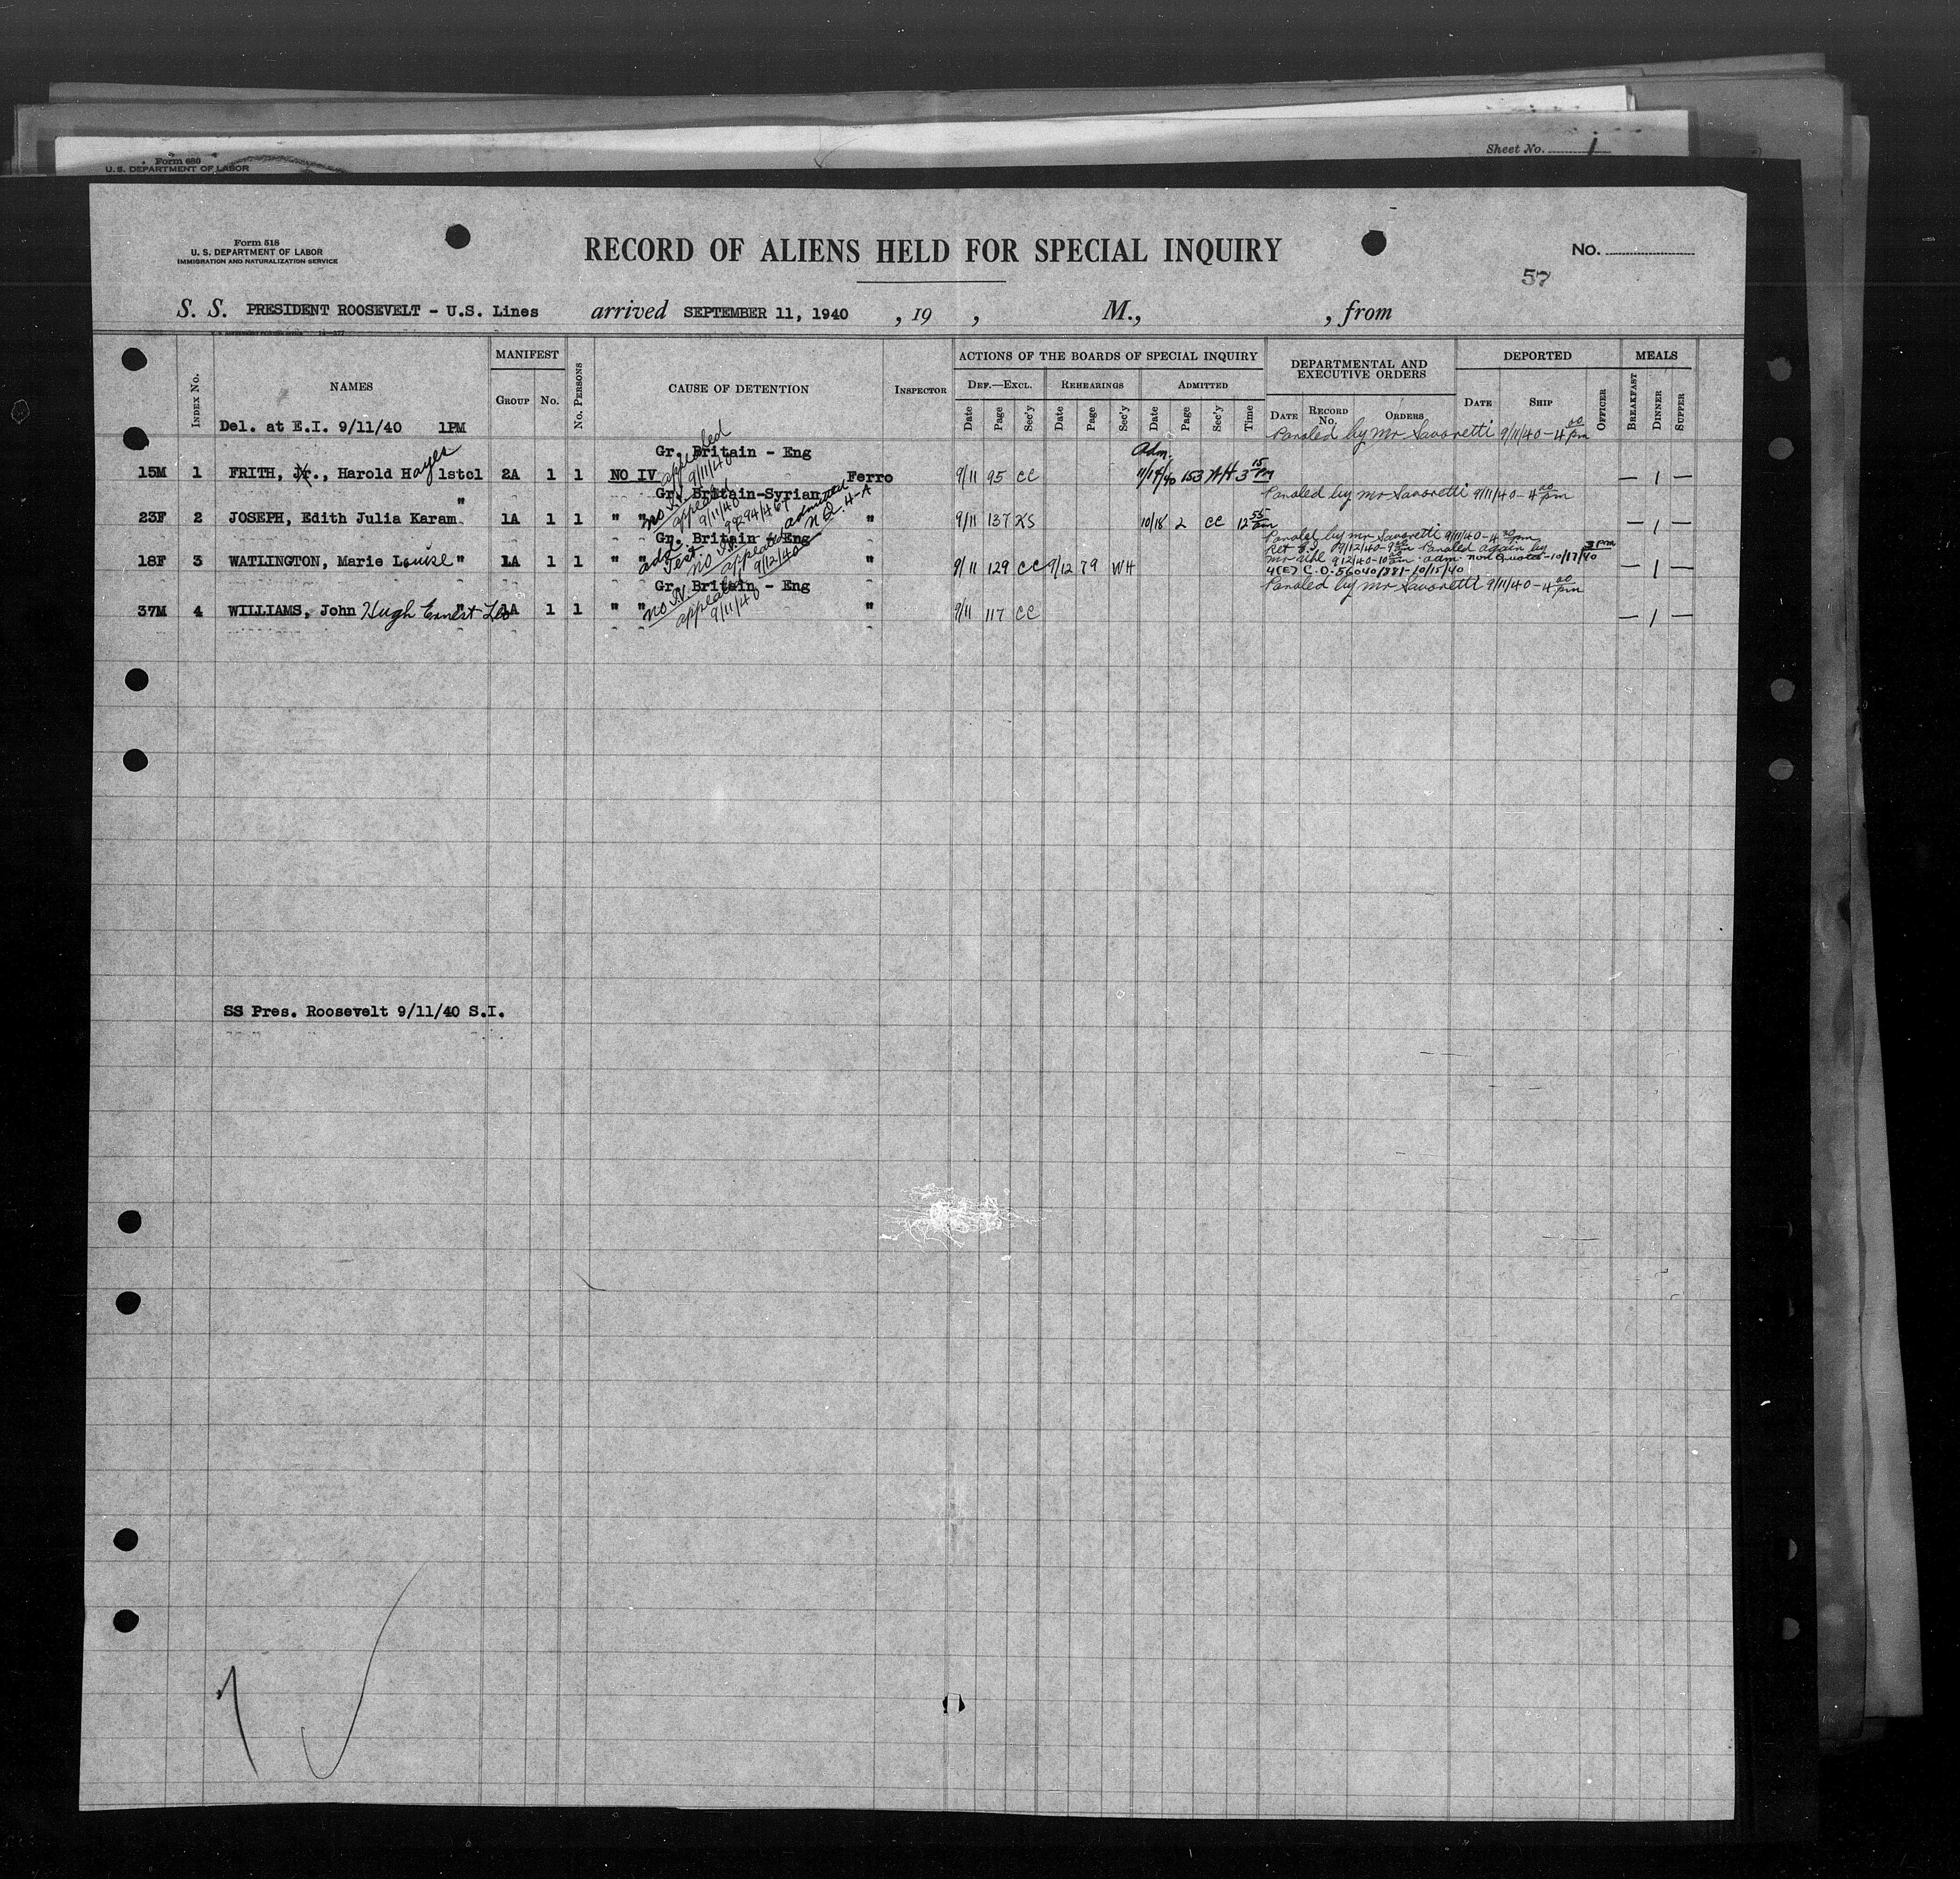 Form 680
U. S. DEPARTMENT OF LABOR
Sheet No. 1
Form 518
U. S. DEPARTMENT OF LABOR
IMMIGRATION AND NATURALIZATION SERVICE
RECORD OF ALIENS HELD FOR SPECIAL INQUIRY
No.
57
S. S. PRESIDENT ROOSEVELT - U.S. Lines arrived SEPTEMBER 11, 1940 , 19 , M., , from
Index No. NAMES MANIFEST Group No. No. Persons CAUSE OF DETENTION Inspector
ACTIONS OF THE BOARDS OF SPECIAL INQUIRY DEPARTMENTAL AND EXECUTIVE ORDERS DEPORTED MEALS
Def.—Excl. Rehearings Admitted
Date Page Sec'y Date Page Sec'y Date Page Sec'y Time Date Record No. Orders Date Ship Officer Breakfast Dinner Supper
Del. at E.I. 9/11/40 1PM
Paroled by Mr Savoretti 9/11/40 - 4 00 pm
Gr. Britain - Eng
appealed 9/11/40
Adm.
15M 1 FRITH, Jr., Harold Hayes 1stcl 2A 1 1 NO IV Ferro 9/11 95 CC 153 3 15 PM — 1 —
Gr. Britain-Syrian
Paroled by Mr Savoretti 9/11/40 - 4 00 pm
23F 2 JOSEPH, Edith Julia Karam " 1A 1 1 " " no IV appealed 9/11/40 " 9/11 137 KS 10/18 2 CC 12 55 — 1 —
Gr. Britain - Eng
Paroled by Mr Savoretti 9/11/40 - 4 30 pm
Ret E.I. 9/12/40 - 9 00 am Paroled again by
Mr Uhl 9/12/40 - 10 00 am - adm. non Quota - 10/17/40 3 PM
4(E) C.O. 56040/881 - 10/15/40
18F 3 WATLINGTON, Marie Louise " 1A 1 1 " " add. Test. no IV appealed 9/12/40 admitted N.Q. 4-A " 9/11 129 CC 9/12 79 WH — 1 —
Gr. Britain - Eng
Paroled by Mr Savoretti 9/11/40 - 4 00 pm
37M 4 WILLIAMS, John Hugh Ernest Leo " 1A 1 1 " " no IV appealed 9/11/40 " 9/11 117 CC — 1 —
SS Pres. Roosevelt 9/11/40 S.I.